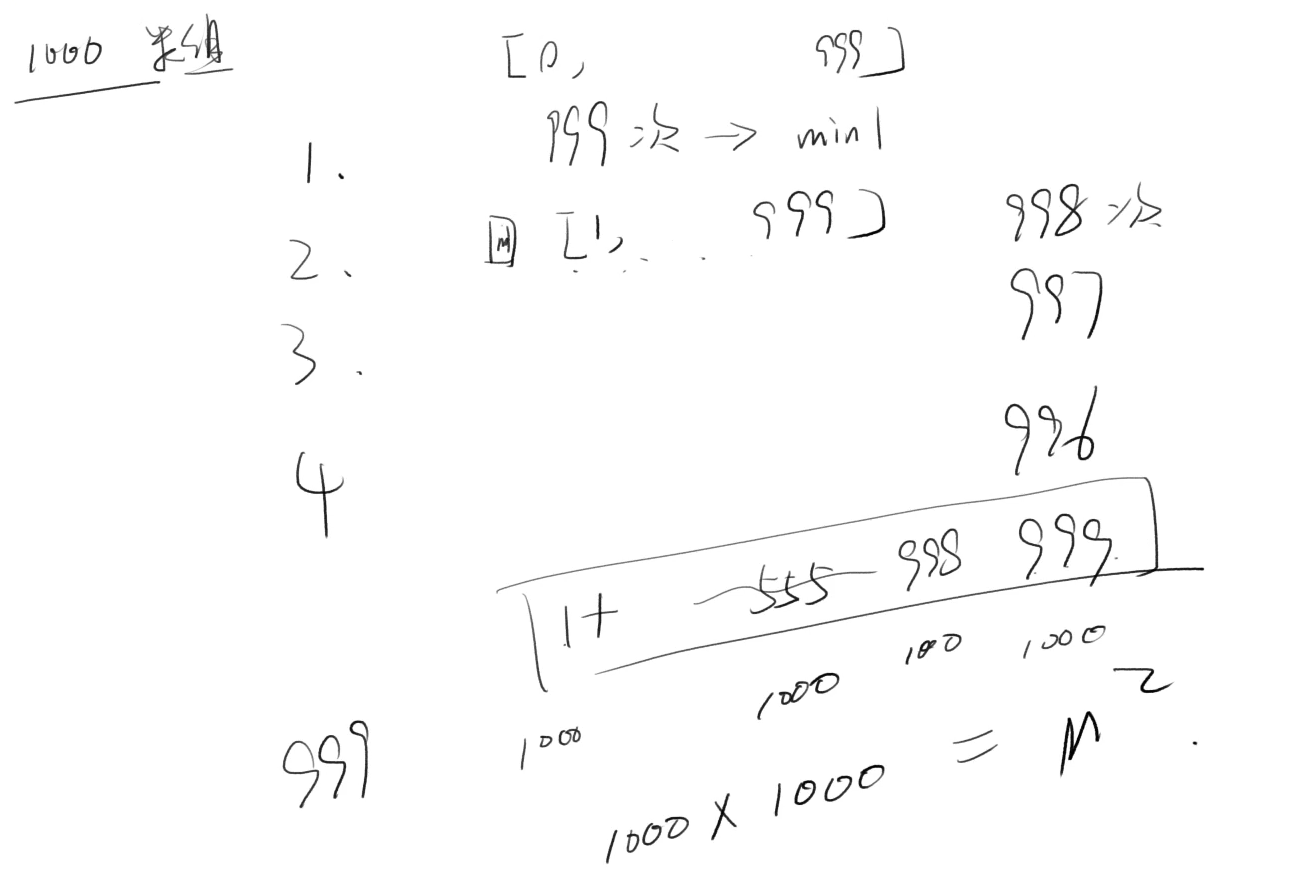 1000 数组
[0, 999]
1. 999次 → min1
2. M [1, . . . . 999] 998次
3. 997
4 996
1+ 555 998 999
1000 1000 100 1000
999
1000 × 1000 = M²